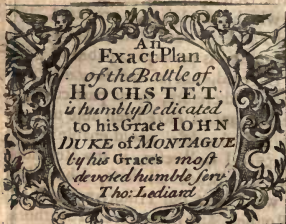 An
Exact Plan
of the Battle of
HOCHSTET
is humbly Dedicated
to his Grace IOHN
DUKE of MONTAGUE
by his Grace's most
devoted humble serv.t
Tho: Lediard